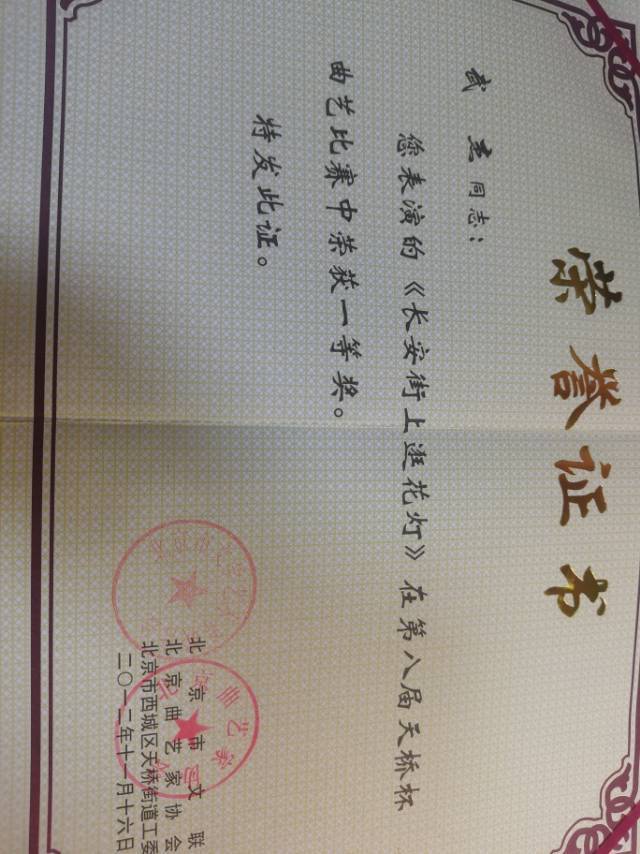 荣誉证书
武杰同志：
您表演的《长安街上逛花灯》在第八届天桥杯
曲艺比赛中荣获一等奖。
特发此证。
北京市文联
北京曲艺家协会
北京市西城区天桥街道工委
二〇一二年十一月十六日